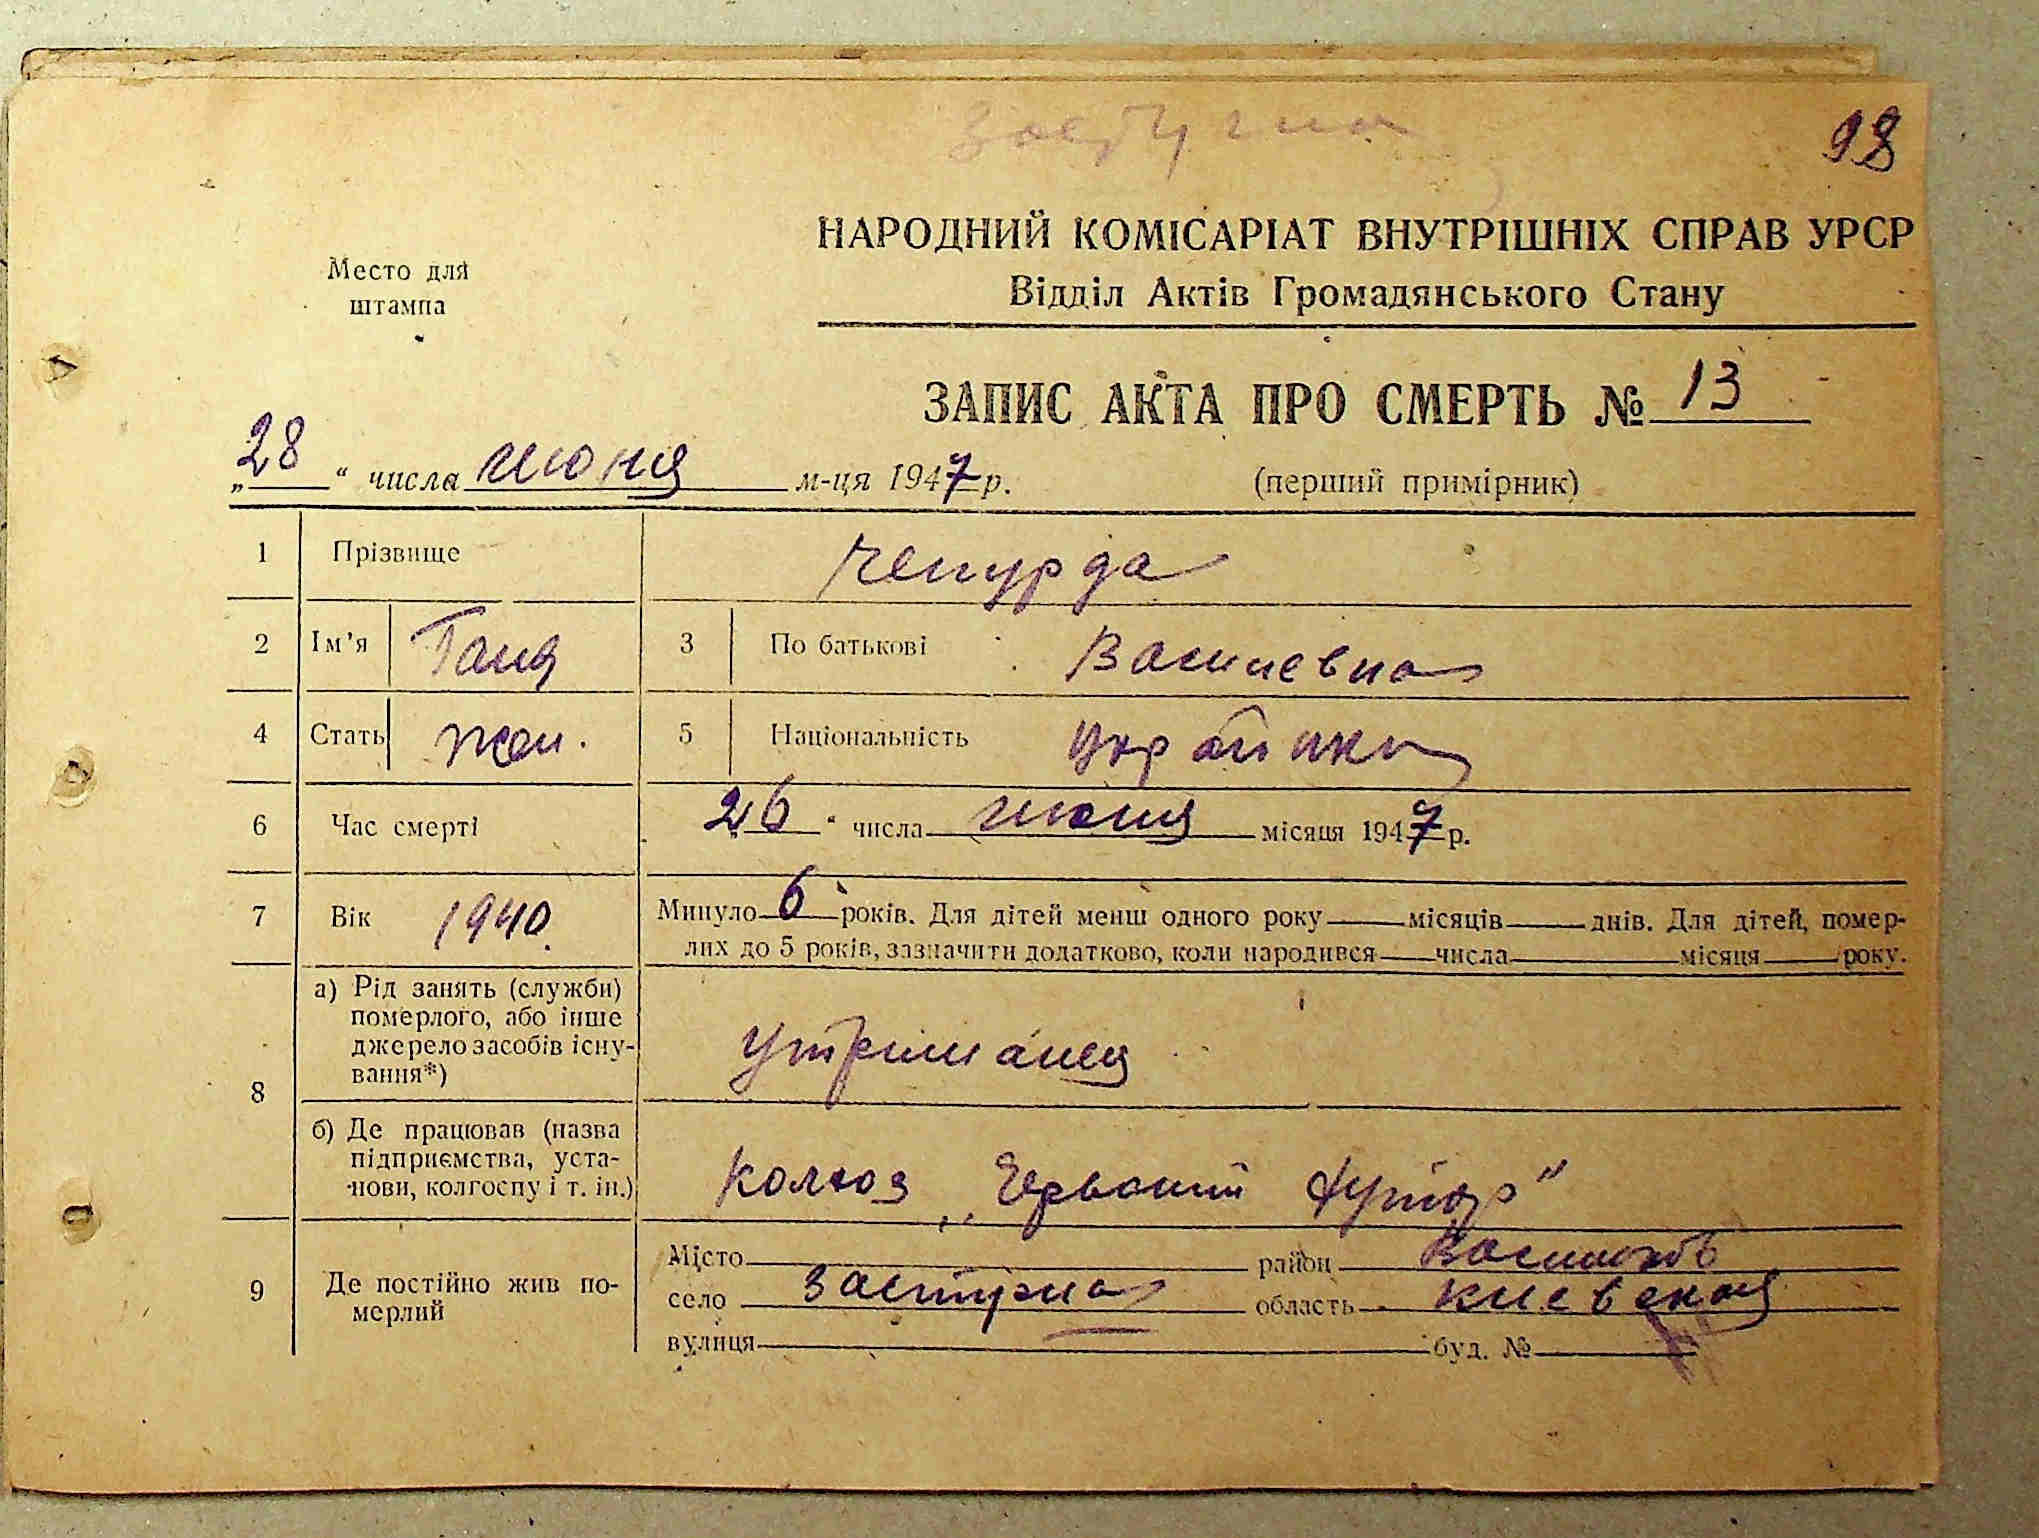 98
НАРОДНИЙ КОМІСАРІАТ ВНУТРІШНІХ СПРАВ УРСР
Відділ Актів Громадянського Стану
Место для
штампа
ЗАПИС АКТА ПРО СМЕРТЬ № 13
„28“ числа июня м-ця 1947 р. (перший примірник)
1 Прізвище Чепурда
2 Ім'я Ганя 3 По батькові Василевна
4 Стать жен. 5 Національність Українка
6 Час смерті 26 “ числа июня місяця 1947 р.
7 Вік 1940. Минуло 6 років. Для дітей менш одного року місяців днів. Для дітей, помер-
лих до 5 років, зазначити додатково, коли народився числа місяця року.
8 а) Рід занять (служби)
померлого, або інше
джерело засобів існу-
вання*)
утриманец
б) Де працював (назва
підприємства, уста-
нови, колгоспу і т. ін.)
Колхоз „Червоний Хутор"
9 Де постійно жив по-
мерлий
Місто район Васильків
село Застугна область Киевская
вулиця буд. №